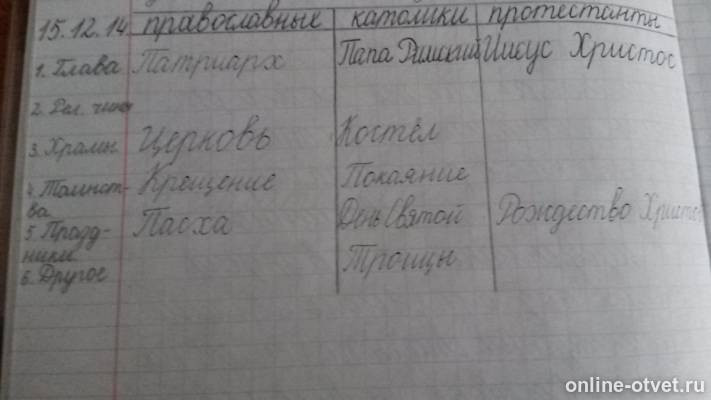 15.12.14 православные католики протестанты
1. Глава Патриарх Папа Римский Иисус Христос
2. Рел. чины
3. Храмы Церковь Костёл
4. Таинст- Крещение Покаяние
ва
5. Празд- Пасха День Святой Рождество Христо
ники Троицы
6. Другое
online-otvet.ru